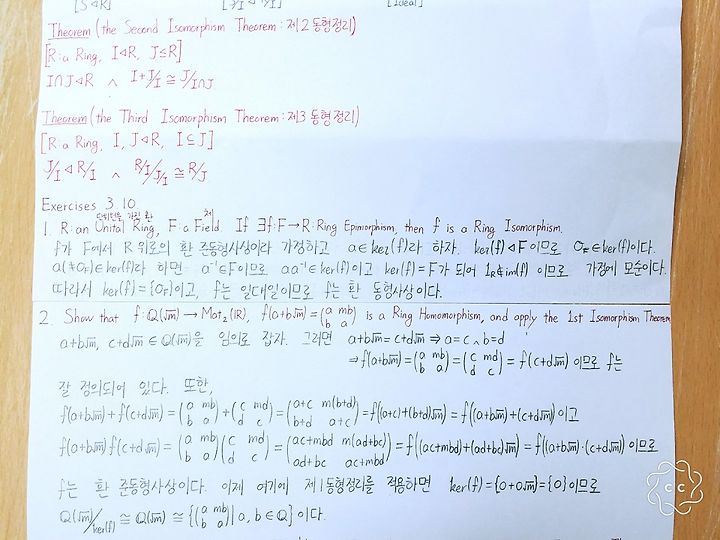 [S⊲R] [Ideal]
Theorem (the Second Isomorphism Theorem : 제2 동형정리)
[R: a Ring, I⊲R, J≤R]
I∩J⊲R ∧ I+J/I ≅ J/I∩J
Theorem (the Third Isomorphism Theorem : 제3 동형정리)
[R: a Ring, I, J⊲R, I⊆J]
J/I ⊲ R/I ∧ R/I/J/I ≅ R/J
Exercises 3.10
단위원을 가진 환 체
1. R: an Unital Ring, F: a Field If ∃f: F→R: Ring Epimorphism, then f is a Ring Isomorphism.
f가 F에서 R 위로의 환 준동형사상이라 가정하고 a∈ker(f)라 하자. ker(f)⊲F 이므로 0_F∈ker(f)이다.
a(≠0_F)∈ker(f)라 하면 a⁻¹∈F이므로 aa⁻¹∈ker(f)이고 ker(f)=F가 되어 1_R∉im(f) 이므로 가정에 모순이다.
따라서 ker(f)={0_F}이고, f는 일대일이므로 f는 환 동형사상이다.
2. Show that f: Q(√m) → Mat₂(R), f(a+b√m) = (a mb b a) is a Ring Homomorphism, and apply the 1st Isomorphism Theorem
a+b√m, c+d√m ∈ Q(√m)을 임의로 잡자. 그러면 a+b√m = c+d√m ⇒ a=c ∧ b=d
⇒ f(a+b√m) = (a mb b a) = (c md d c) = f(c+d√m) 이므로 f는
잘 정의되어 있다. 또한,
f(a+b√m)+f(c+d√m) = (a mb b a)+(c md d c) = (a+c m(b+d) b+d a+c) = f((a+c)+(b+d)√m) = f((a+b√m)+(c+d√m)) 이고
f(a+b√m)f(c+d√m) = (a mb b a)(c md d c) = (ac+mbd m(ad+bc) ad+bc ac+mbd) = f((ac+mbd)+(ad+bc)√m) = f((a+b√m)·(c+d√m)) 이므로
f는 환 준동형사상이다. 이제 여기에 제1동형정리를 적용하면 ker(f)={0+0√m}={0}이므로
Q(√m)/ker(f) ≅ Q(√m) ≅ {(a mb b a) | a, b∈Q} 이다.
CC